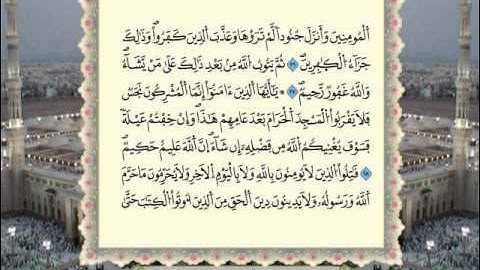 اَ۬لْمُومِنِينَ وَأَنزَلَ جُنُوداً لَّمْ تَرَوْهَا وَعَذَّبَ اَ۬لذِينَ كَفَرُواْۖ وَذَٰلِكَ
جَزَآءُ اُ۬لْكٰ۪فِرِينَۖ ٢٦ ثُمَّ يَتُوبُ اُ۬للَّهُ مِنۢ بَعْدِ ذَٰلِكَ عَلَىٰ مَنْ يَّشَآءُۖ
وَاللَّهُ غَفُورٞ رَّحِيمٞۖ ٢٧ يَٰٓأَيُّهَا اَ۬لذِينَ ءَامَنُوٓاْ إِنَّمَا اَ۬لْمُشْرِكُونَ نَجَسٞ
فَلَا يَقْرَبُواْ اُ۬لْمَسْجِدَ اَ۬لْحَرَامَ بَعْدَ عَامِهِمْ هَٰذَاۖ وَإِنْ خِفْتُمْ عَيْلَةٗ
فَسَوْفَ يُغْنِيكُمُ اُ۬للَّهُ مِن فَضْلِهِۦٓ إِن شَآءَۖ اِنَّ اَ۬للَّهَ عَلِيمٌ حَكِيمٞۖ
٢٨ قَٰتِلُواْ اُ۬لذِينَ لَا يُومِنُونَ بِاللَّهِ وَلَا بِالْيَوْمِ اِ۬لَاخِرِ وَلَا يُحَرِّمُونَ مَا حَرَّمَ
اَ۬للَّهُ وَرَسُولُهُۥ وَلَا يَدِينُونَ دِينَ اَ۬لْحَقِّ مِنَ اَ۬لذِينَ أُوتُواْ اُ۬لْكِتَٰبَ حَتَّىٰ